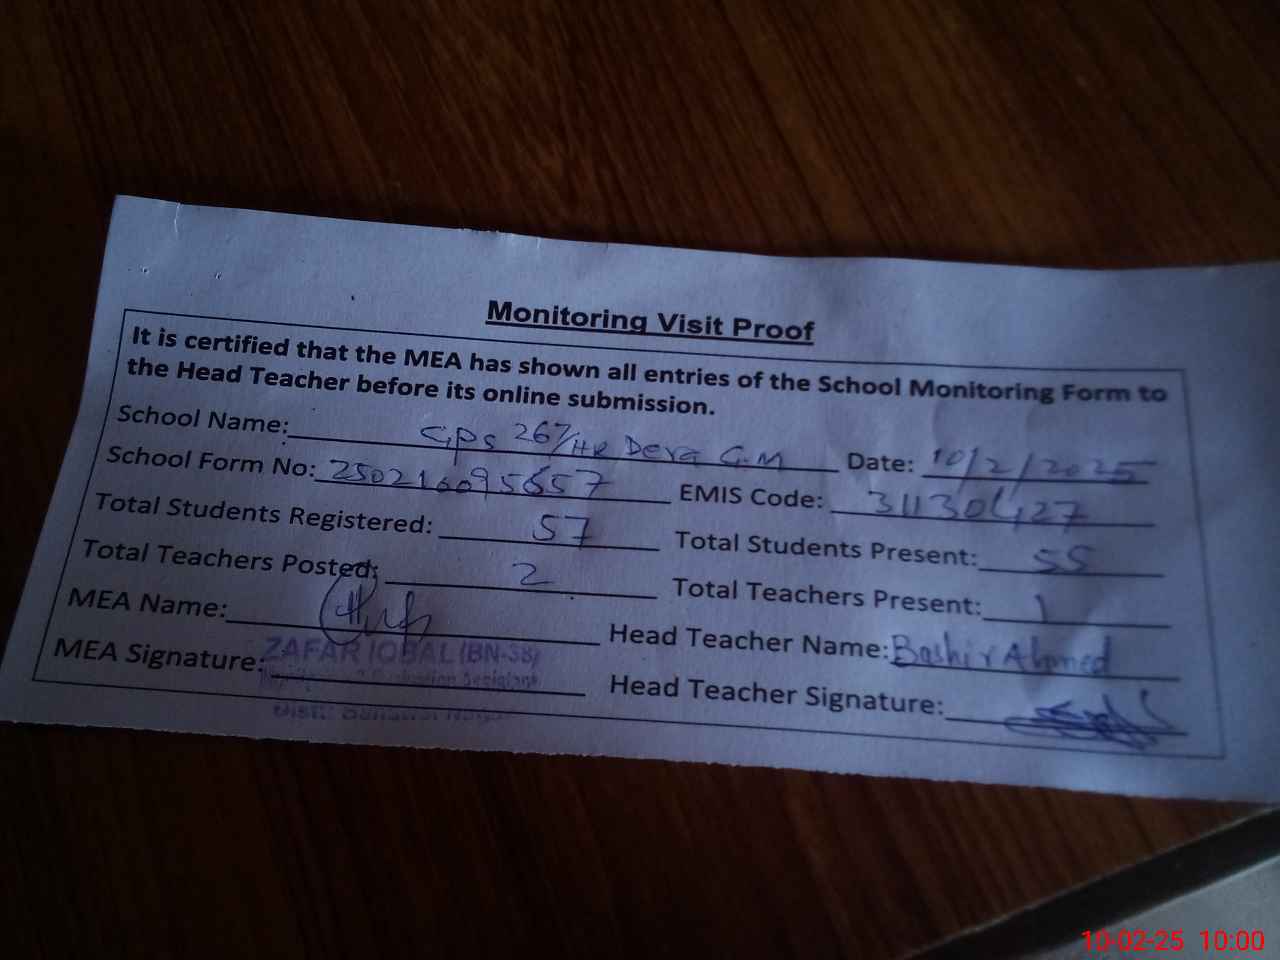 Monitoring Visit Proof
It is certified that the MEA has shown all entries of the School Monitoring Form to
the Head Teacher before its online submission.
School Name: GPS 267/HR Dera G.M Date: 10/2/2025
School Form No: 250216095657 EMIS Code: 31130427
Total Students Registered: 57 Total Students Present: 55
Total Teachers Posted: 2 Total Teachers Present: 1
MEA Name: Head Teacher Name: Bashir Ahmed
ZAFAR IQBAL (BN-38)
MEA Signature: Head Teacher Signature:
10-02-25 10:00